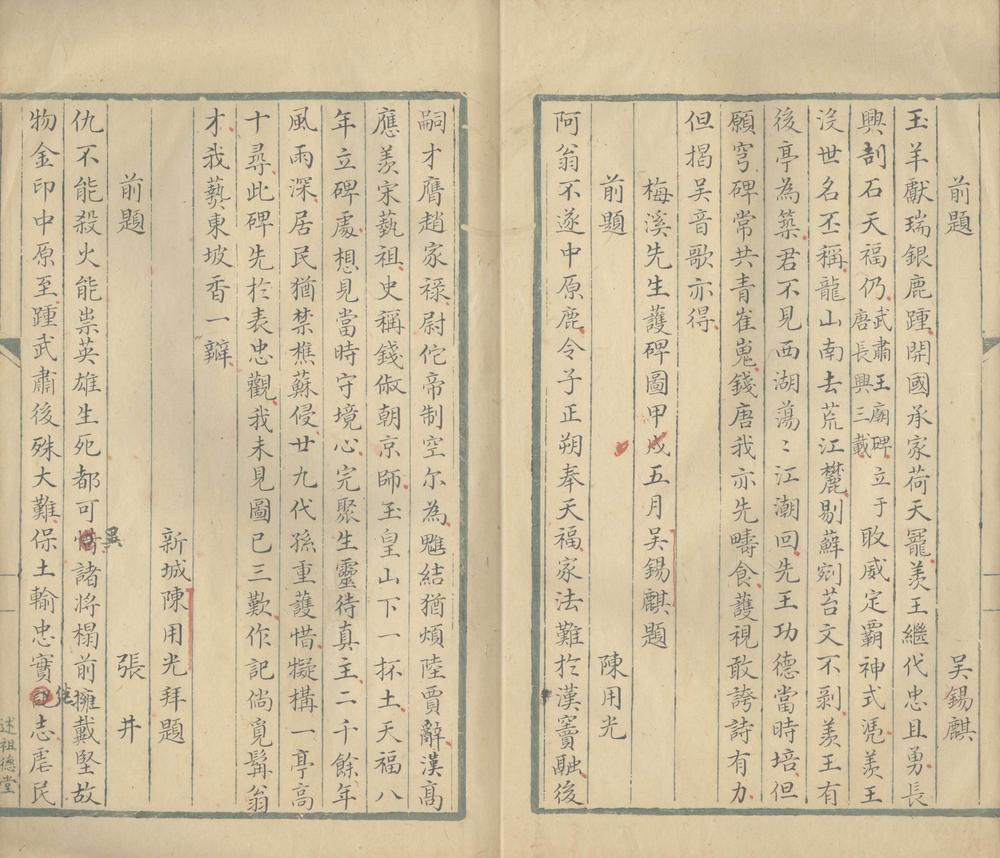 前題
吳錫麒
玉羊獻瑞銀鹿踵開國承家荷天寵羨王繼代忠且勇長
興剖石天福仍武肅王廟碑立于唐長興三載敗威定霸神式憑羨王
沒世名丕稱龍山南去荒江麓剔蘚剜苔文不剥羨王有
後亭為築君不見西湖蕩〻江潮回先王功德當時培但
願穹碑常共青崔嵬錢唐我亦先疇食護視敢誇詩有力
但揭吳音歌亦得
梅溪先生護碑圖甲戌五月吳錫麒題
前題
陳用光
阿翁不遂中原鹿令子正朔奉天福家法難於漢竇融後
嗣才膺趙家祿尉佗帝制空尔為魋結猶煩陸賈辭漢高
應羨宋藝祖史稱錢俶朝京師玉皇山下一抔土天福八
年立碑處想見當時守境心完聚生靈待真主二千餘年
風雨深居民猶禁樵蘇侵廿九代孫重護惜擬構一亭高
十尋此碑先於表忠觀我未見圖已三歎作記倘覓髯翁
才我爇東坡香一瓣
新城陳用光拜題
前題
張井
仇不能殺火能祟英雄生死都可異諸將榻前擁戴堅故
物金印中原至踵武肅後殊大難保土輸忠實繼志虐民
述祖德堂